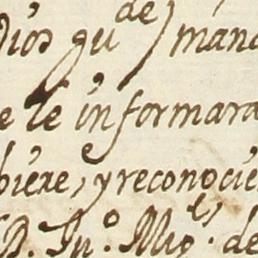 dios gu^de) mand
e le informara
biere, y reconocie
D. Ju^o. Mig^l. de